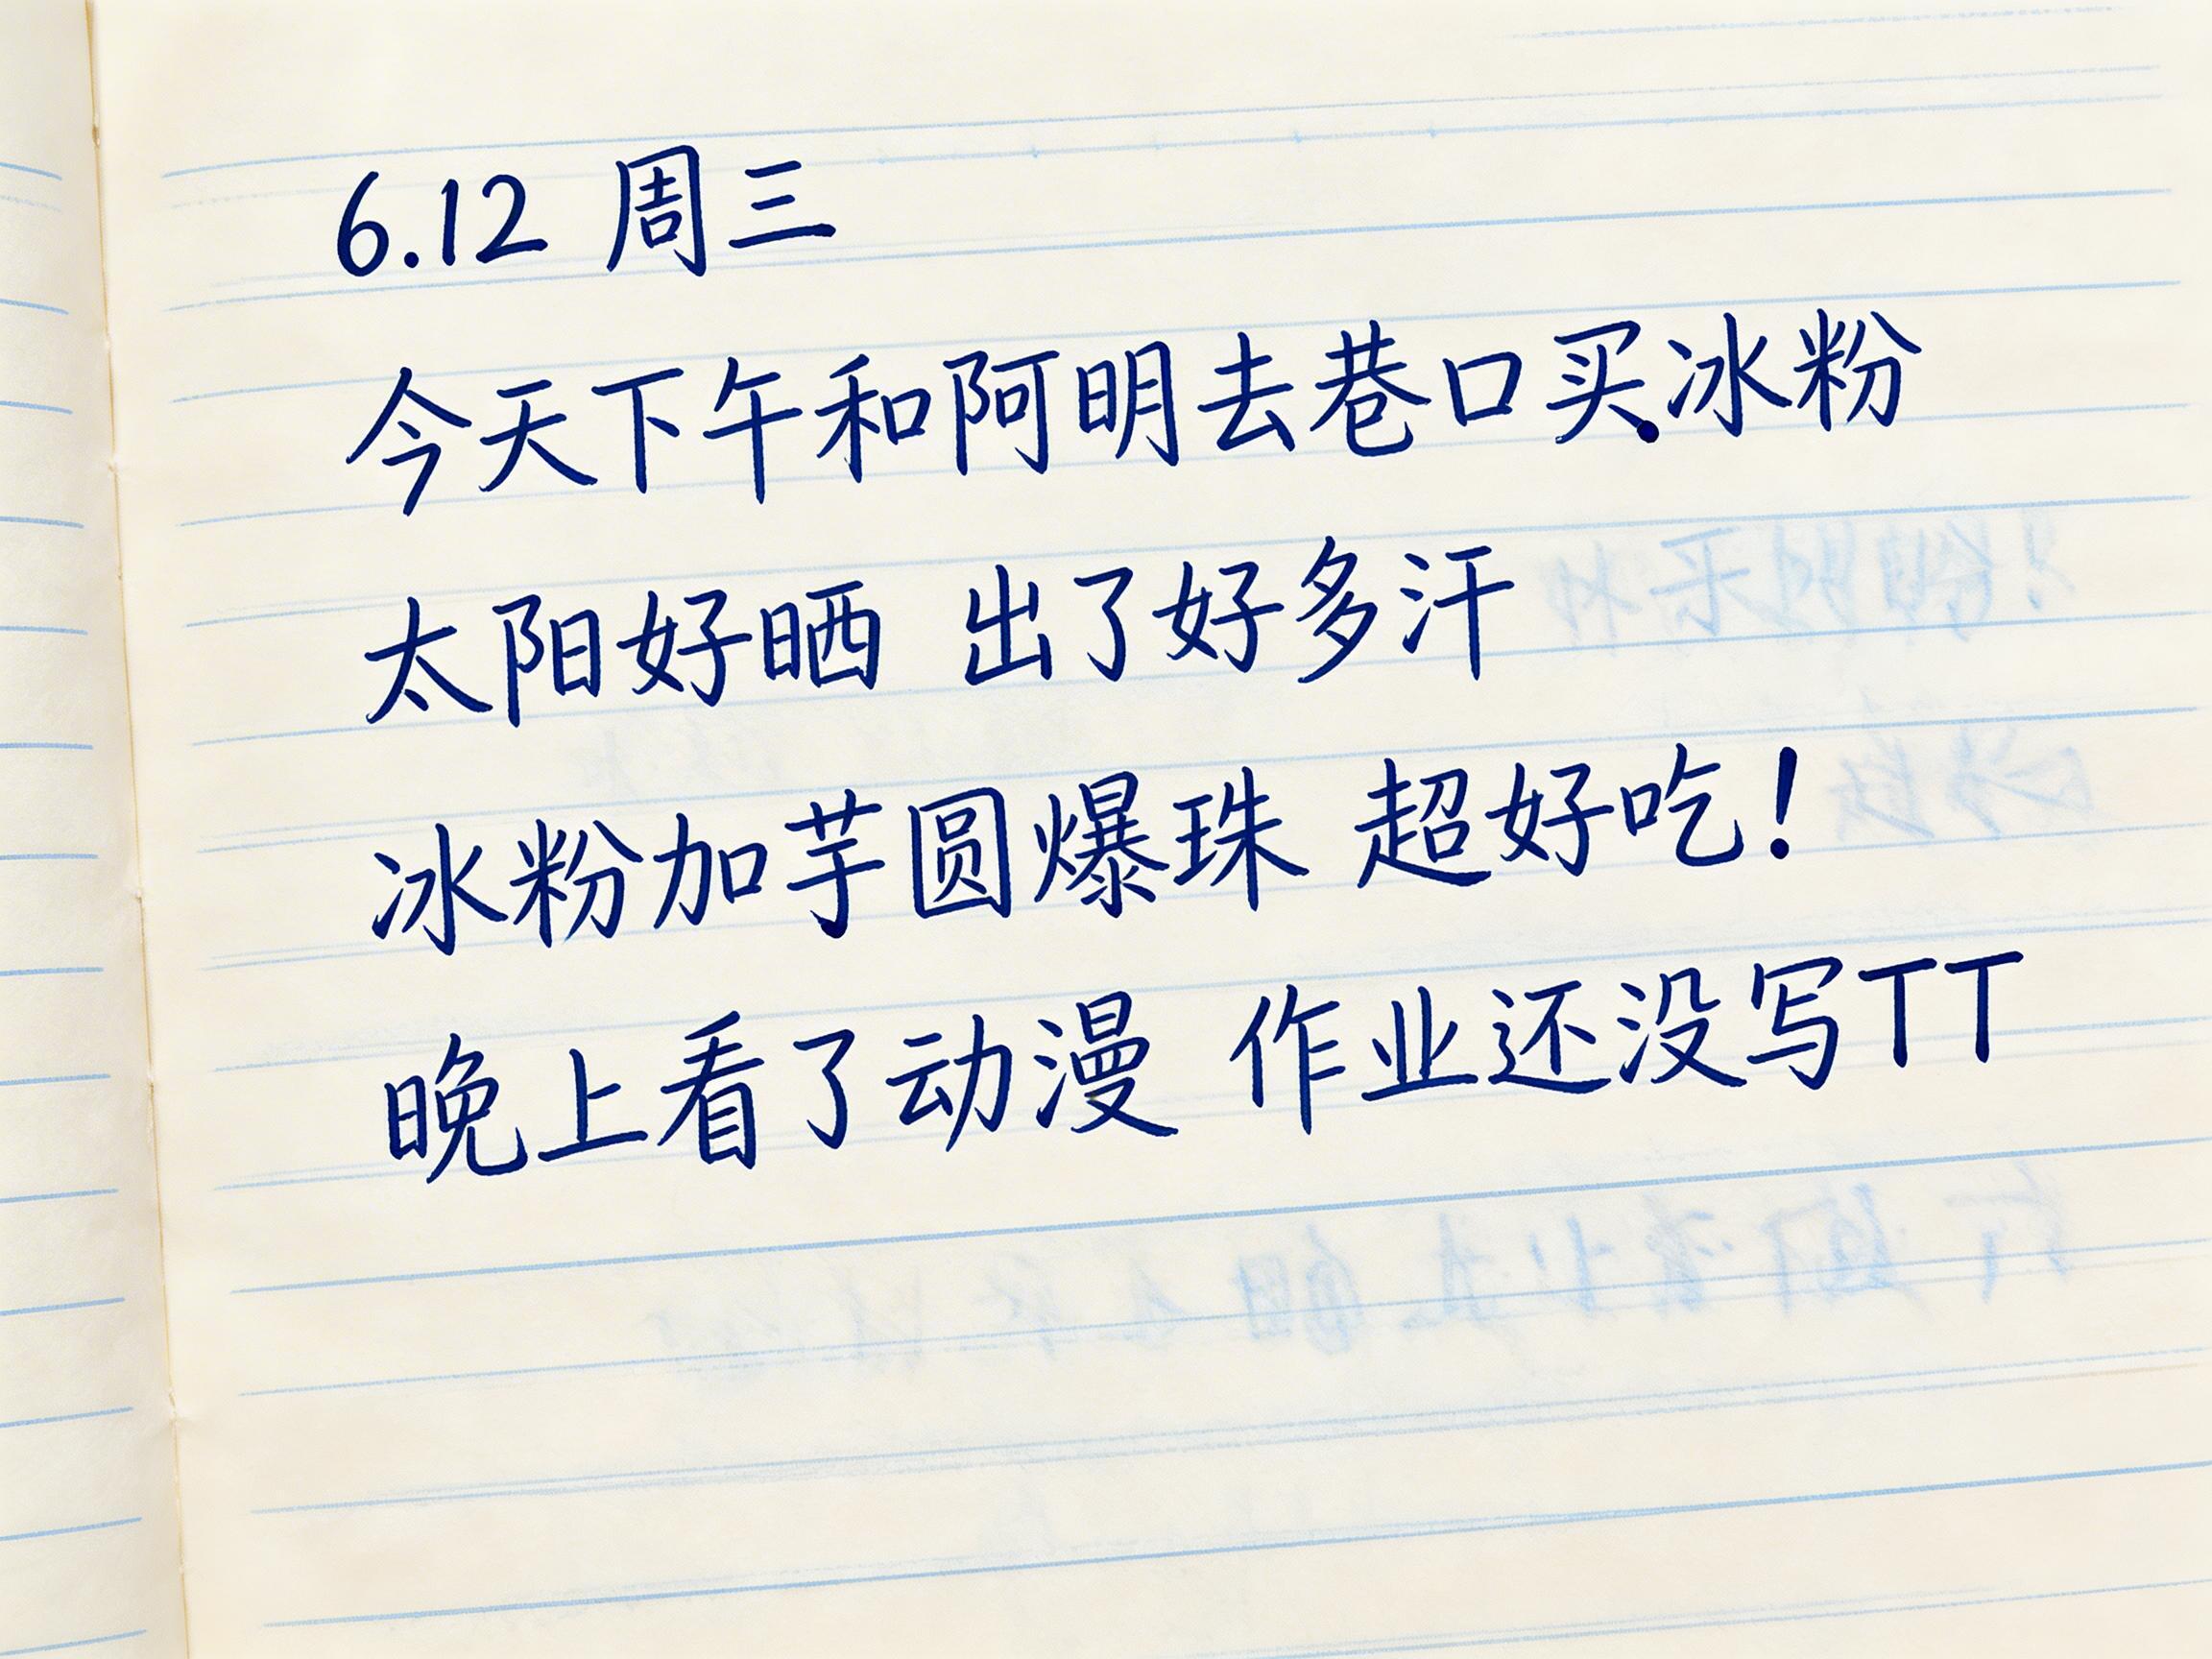 6.12 周三
今天下午和阿明去巷口买冰粉
太阳好晒 出了好多汗
冰粉加芋圆爆珠 超好吃!
晚上看了动漫 作业还没写TT